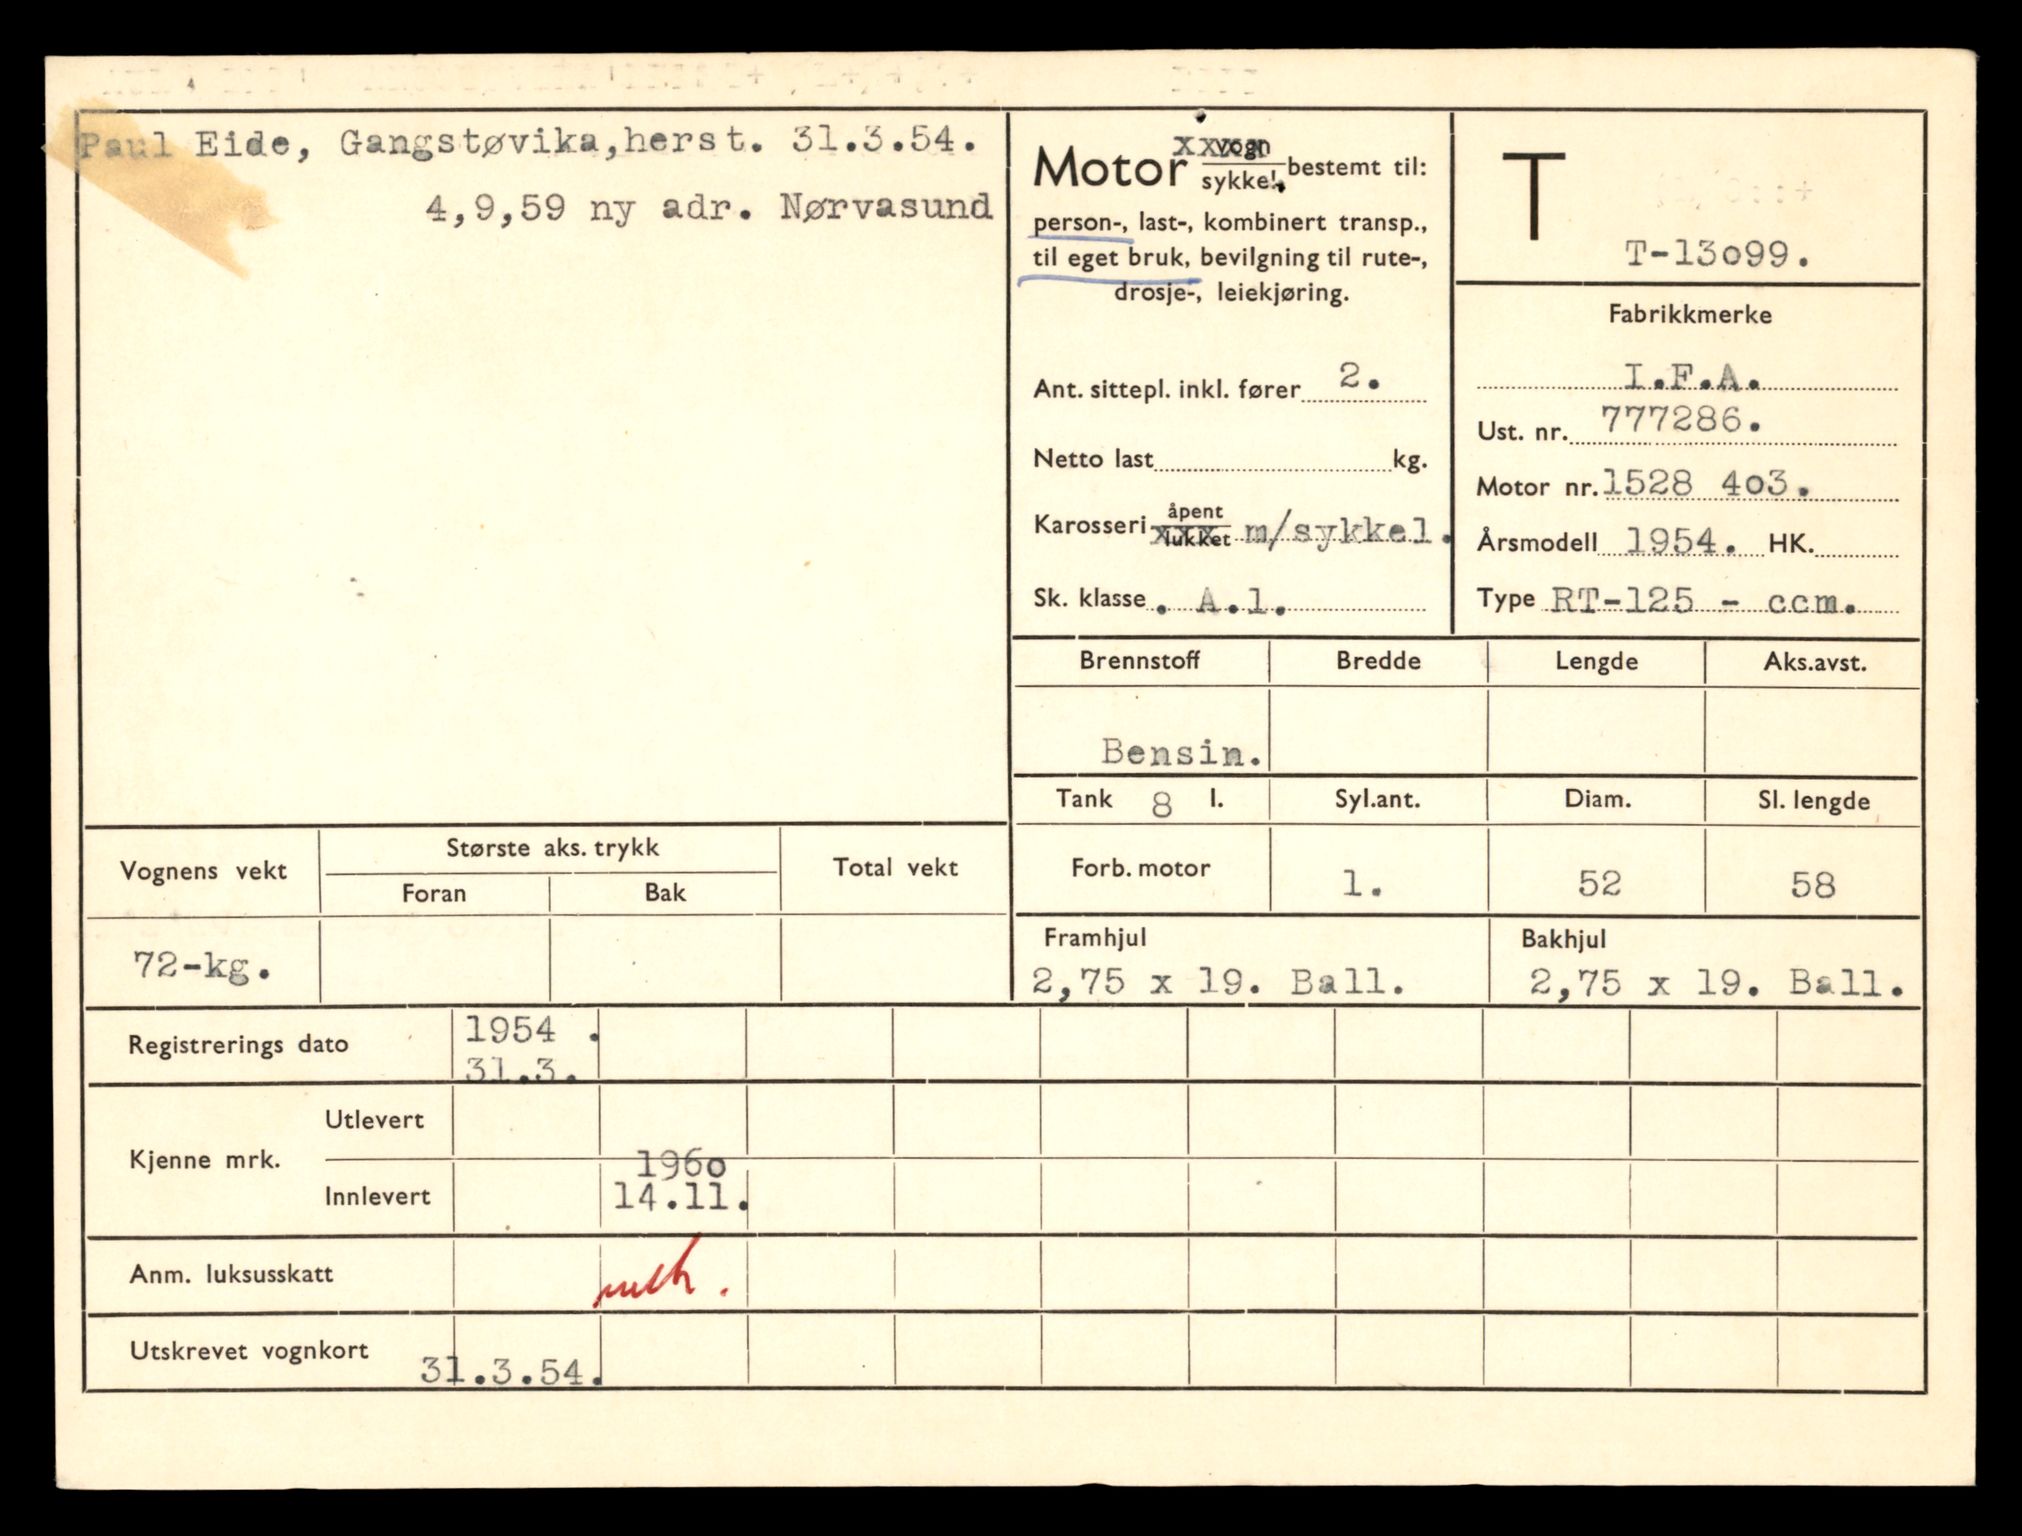 Paul Eide, Gangstøvika,herst. 31.3.54.
4,9,59 ny adr. Nørvasund
Motor vogn xxxx sykkel, bestemt til:
person-, last-, kombinert transp.,
til eget bruk, bevilgning til rute-,
drosje-, leiekjøring.
Ant. sittepl. inkl. fører 2.
Netto last kg.
Karosseri åpent lukket xxx m/sykkel.
Sk. klasse . A.1.
T
T-13o99.
Fabrikkmerke
I.F.A.
Ust. nr. 777286.
Motor nr. 1528 4o3.
Årsmodell 1954. HK.
Type RT-125 - ccm.
Brennstoff Bredde Lengde Aks.avst.
Bensin.
Tank 8 l. Syl.ant. Diam. Sl. lengde
Forb. motor 1. 52 58
Framhjul Bakhjul
2,75 x 19. Ball. 2,75 x 19. Ball.
Vognens vekt Største aks. trykk Total vekt
Foran Bak
72-kg.
Registrerings dato 1954 .
31.3.
Kjenne mrk. Utlevert
Innlevert 196o
14.11.
Anm. luksusskatt
Utskrevet vognkort 31.3.54.